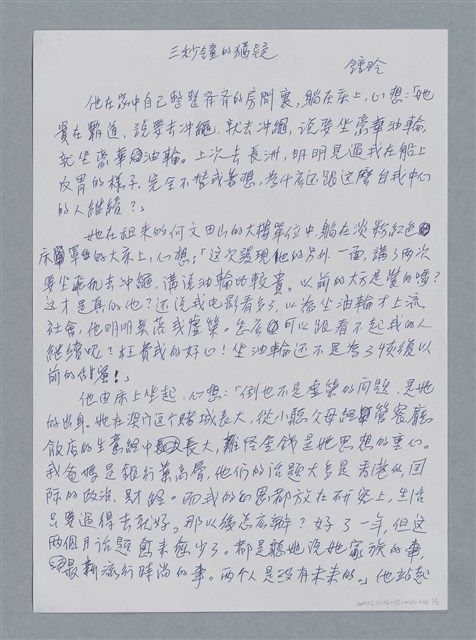 三秒鐘的猶疑
鍾玲
他在家中自己整整齊齊的房間裏，躺在床上，心想：「她
實在霸道，說要去沖繩，就去沖繩，說要坐豪華油輪，
就坐豪華油輪。上次去長洲，明明見過我在船上
反胃的樣子，完全不替我着想，為什麼还跟这麼自我中心
的人継續？」
她在租來的何文田山的大樓單位中躺在淡粉紅色
床單的大床上，心想：「这次發現他的另外一面，講了兩次
要坐飛机去沖繩，講说油輪比較貴。以前的大方是裝的嗎？
这才是真的他？还说我电影看多了，以為坐油輪才上流
社會，他明明暴落我虛榮。怎麼可以跟看不起我的人
継續呢？枉費我的好心！坐油輪还不是為了恢復以
前的甜蜜！」
他由床上坐起，心想：「倒也不是虛榮的問題，是她
的出身。她在澳门这个賭城長大，從小聽父母經營餐廳
飯店的生意經中長大，難怪金钱是她思想的重心。
我爸媽是銀行業高層，他们的话題大多是香港及国
际的政治、財經。而我的心思都放在研究上，生活
只要過得去就好。那以後怎麼辦？好了一年，但这
两個月话題愈来愈少了。都是聽她说她家族的事，
最新流行時尚的事。两个人是没有未来的。」他站起
1/2